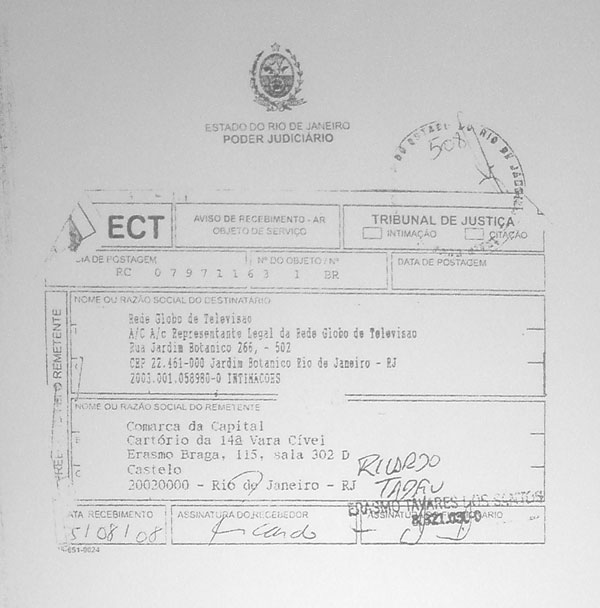 ESTADO DO RIO DE JANEIRO
PODER JUDICIÁRIO
DO ESTADO DO RIO DE JANEIRO
508
ECT
AVISO DE RECEBIMENTO - AR
OBJETO DE SERVIÇO
TRIBUNAL DE JUSTIÇA
INTIMAÇÃO
CITAÇÃO
DE POSTAGEM
Nº DO OBJETO / Nº
DATA DE POSTAGEM
RC 07971163 1 BR
REMETENTE
NOME OU RAZÃO SOCIAL DO DESTINATÁRIO
Rede Globo de Televisao
A/C A/c Representante Legal da Rede Globo de Televisao
Rua Jardim Botanico 266, - 502
CEP 22.461-000 Jardim Botanico Rio de Janeiro - RJ
2003.001.058980-0 INTIMACOES
NOME OU RAZÃO SOCIAL DO REMETENTE
Comarca da Capital
Cartório da 14ª Vara Cível
Erasmo Braga, 115, sala 302 D
Castelo
20020000 - Rio de Janeiro - RJ
RICARDO
ERASMO TAVARES DOS SANTOS
ATA RECEBIMENTO
5/08/08
ASSINATURA DO RECEBEDOR
Ricardo
ASSINATURA